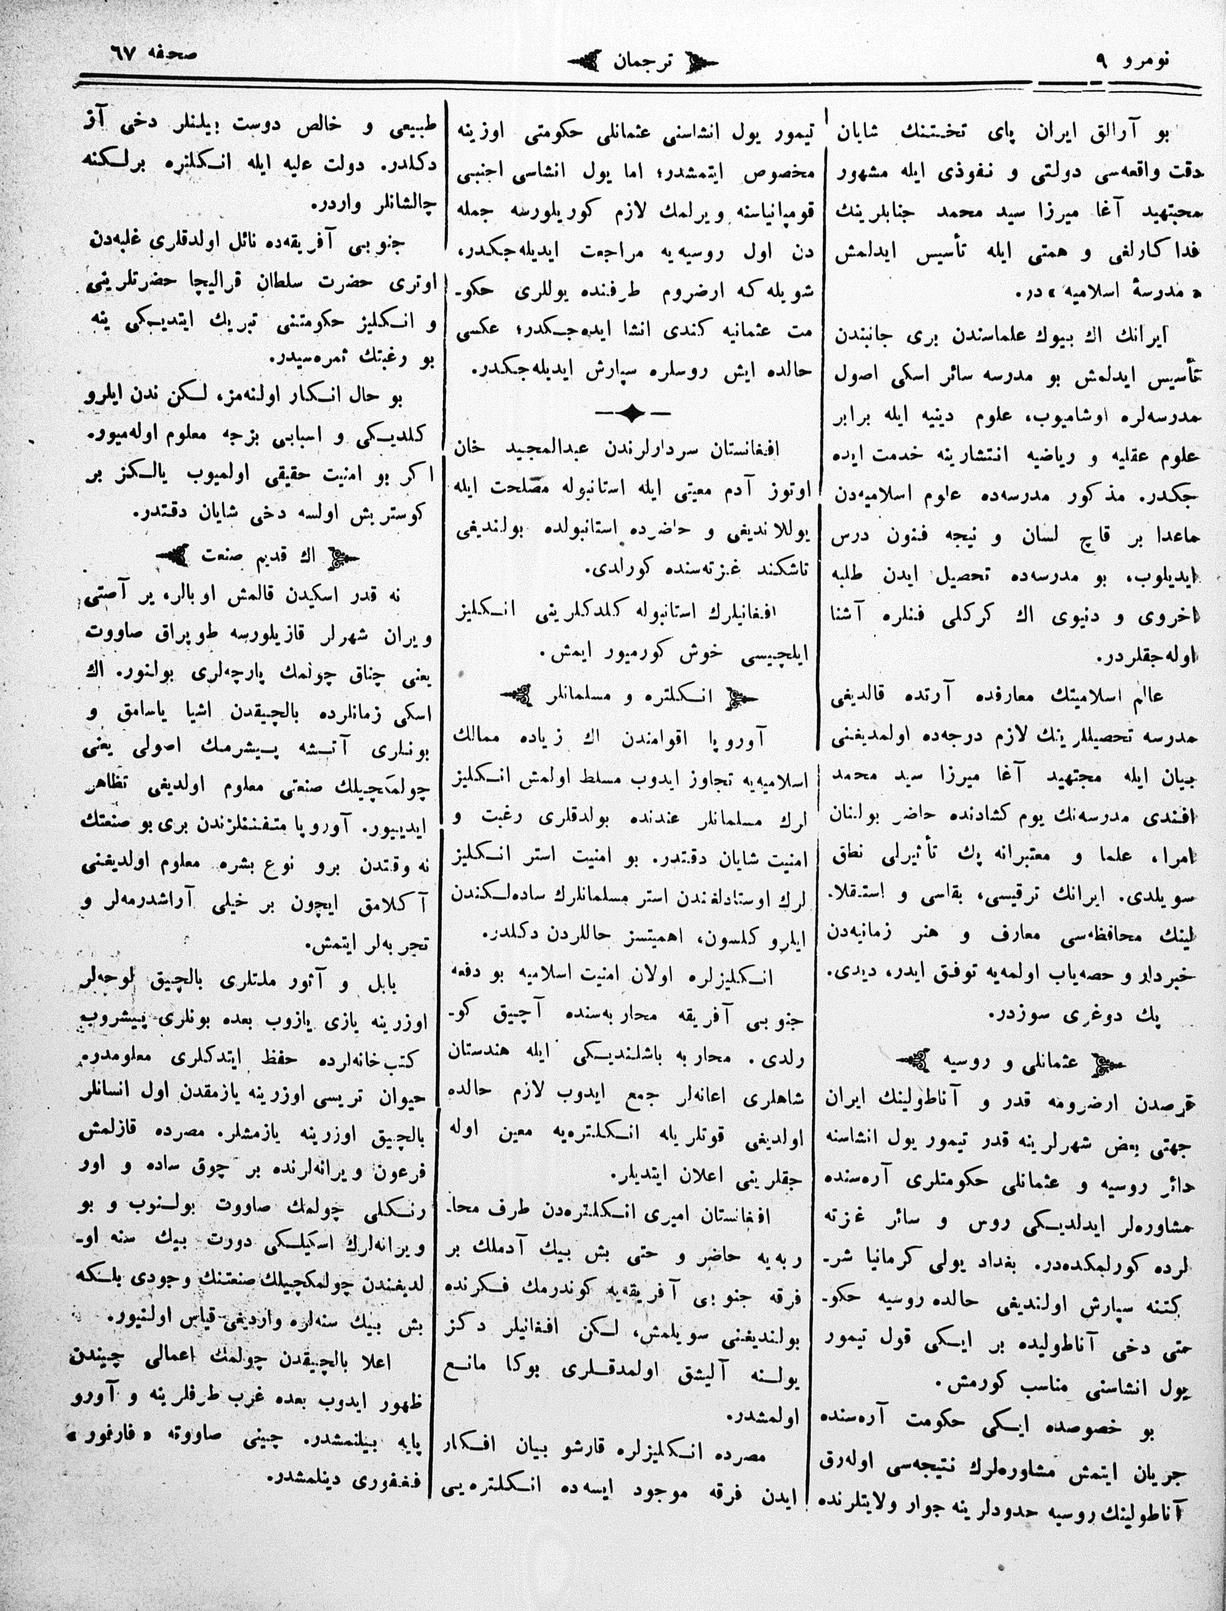 نومرو ٩
ترجمان
صحفه ٦٧
بو آرالق ايران پاى تختنك شايان
دقت واقعه‌سى دولتى و نفوذى ايله مشهور
مجتهيد آغا ميرزا سيد محمد جنابلرينك
فداكارلغى و همتى ايله تأسيس ايدلمش
«مدرسۀ اسلاميه» در.
ايرانك اك بيوك علماسندن برى جانبندن
تأسيس ايدلمش بو مدرسه سائر اسكى اصول
مدرسه‌لره اوشاميوب، علوم دينيه ايله برابر
علوم عقليه و رياضيه انتشارينه خدمت ايده
جكدر. مذكور مدرسه‌ده علوم اسلاميه‌دن
ماعدا بر قاچ لسان و نيجه فنون درس
ايديلوب، بو مدرسه‌ده تحصيل ايدن طلبه
اخروى و دنيوى اك كركلى فنلره آشنا
اوله‌جقلردر.
عالم اسلاميتك معارفده آرتده قالديغى
مدرسه تحصيللرينك لازم درجه‌ده اولمديغنى
بيان ايله مجتهيد آغا ميرزا سيد محمد
افندى مدرسه‌نك يوم كشادنده حاضر بولنان
امرا، علما و معتبرانه پك تأثيرلى نطق
سويلدى. ايرانك ترقيسى، بقاسى و استقلا-
لينك محافظه‌سى معارف و هنر زمانيه‌دن
خبردار و حصه‌ياب اولمه‌يه توفيق ايدر، ديدى.
پك دوغرى سوزدر.
عثمانلى و روسيه
قرصدن ارضرومه قدر و آناطولينك ايران
جهتى بعض شهرلرينه قدر تيمور يول انشاسنه
دائر روسيه و عثمانلى حكومتلرى آره‌سنده
مشاوره‌لر ايدلديكى روس و سائر غزته
لرده كورلمكده‌در. بغداد يولى كرمانيا شر-
كتنه سپارش اولنديغى حالده روسيه حكو-
متى دخى آناطوليده بر ايكى قول تيمور
يول انشاسنى مناسب كورمش.
بو خصوصده ايكى حكومت آره‌سنده
جريان ايتمش مشاوره‌لرك نتيجه‌سى اوله‌رق
آناطولينك روسيه حدودلرينه جوار ولايتلرنده
تيمور يول انشاسنى عثمانلى حكومتى اوزينه
مخصوص ايتمشدر؛ اما يول انشاسى اجنبى
قومپانياسنه ويرلمك لازم كوريلورسه جمله
دن اول روسيه‌يه مراجعت ايديله‌جكدر،
شويله‌كه ارضروم طرفنده يوللرى حكو-
مت عثمانيه كندى انشا ايده‌جكدر؛ عكسى
حالده ايش روسلره سپارش ايديله‌جكدر.
افغانستان سردارلرندن عبدالمجيد خان
اوتوز آدم معيتى ايله استانبوله مصلحت ايله
يوللانديغى و حاضرده استانبولده بولنديغى
تاشكند غزته‌سنده كورلدى.
افغانيلرك استانبوله كلدكلرينى انكليز
ايلچيسى خوش كورميور ايمش.
انكلتره و مسلمانلر
آوروپا اقوامندن اك زياده ممالك
اسلاميه‌يه تجاوز ايدوب مسلط اولمش انكليز
لرك مسلمانلر عندنده بولدقلرى رغبت و
امنيت شايان دقتدر. بو امنيت استر انكليز
لرك اوستادلغندن استر مسلمانلرك ساده‌لكندن
ايلرو كلسون، اهميتسز حاللردن دكلدر.
انكليزلره اولان امنيت اسلاميه بو دفعه
جنوبى آفريقه محاربه‌سنده آچيق كو-
رلدى. محاربه باشلنديكى ايله هندستان
شاهلرى اعانه‌لر جمع ايدوب لازم حالده
اولديغى قوتلريله انكلتره‌يه معين اوله
جقلرينى اعلان ايتديلر.
افغانستان اميرى انكلتره‌دن طرف محا-
ربه‌يه حاضر و حتى بش بيك آدملك بر
فرقه جنوبى آفريقه‌يه كوندرمك فكرنده
بولنديغنى سويلمش، لكن افغانيلر دكز
يولنه آليشق اولمدقلرى بوكا مانع
اولمشدر.
مصرده انكليزلره قارشو بيان افكار
ايدن فرقه موجود ايسه‌ده انكلتره‌يى
طبيعى و خالص دوست بيلنلر دخى آز
دكلدر. دولت عليه ايله انكلتره برلكنه
چالشانلر واردر.
جنوبى آفريقه‌ده نائل اولدقلرى غلبه‌دن
اوترى حضرت سلطان قراليچا حضرتلرينى
و انكليز حكومتنى تبريك ايتديكى ينه
بو رغبتك ثمره‌سيدر.
بو حال انكار اولنه‌مز، لكن ندن ايلرو
كلديكى و اسبابى بزجه معلوم اوله‌ميور.
اكر بو امنيت حقيقى اولميوب يالكز بر
كوستريش اولسه دخى شايان دقتدر.
اك قديم صنعت
نه قدر اسكيدن قالمش اوبالر، ير آصتى
ويران شهرلر قازيلورسه طوپراق صاووت
يعنى چناق چولمك پارچه‌لرى بولنور. اك
اسكى زمانلرده بالچيقدن اشيا ياسامق و
بونلرى آتشه پيشرمك اصولى يعنى
چولمكچيلك صنعتى معلوم اولديغى تظاهر
ايديور. آوروپا متفننلرندن برى بو صنعتك
نه وقتدن برو نوع بشره معلوم اولديغنى
آكلامق ايچون بر خيلى آراشدرمه‌لر و
تجربه‌لر ايتمش.
بابل و آثور ملتلرى بالچيق لوحه‌لر
اوزرينه يازى يازوب بعده بونلرى پيشروب
كتبخانه‌لرده حفظ ايتدكلرى معلومدر.
حيوان تريسى اوزرينه يازمقدن اول انسانلر
بالچيق اوزرينه يازمشلر. مصرده قازلمش
فرعون ويرانه‌لرنده بر چوق ساده و اور
رنكلى چولمك صاووت بولنوب و بو
ويرانه‌لرك اسكيلكى دورت بيك سنه او-
لديغندن چولمكچيلك صنعتنك وجودى بلكه
بش بيك سنه‌لره وارديغى قياس اولنيور.
اعلا بالچيقدن چولمك اعمالى چيندن
ظهور ايدوب بعده غرب طرفلرينه و آورو
پايه بيلنمشدر. چينى صاووته «فارفور»
فغفورى دينلمشدر.